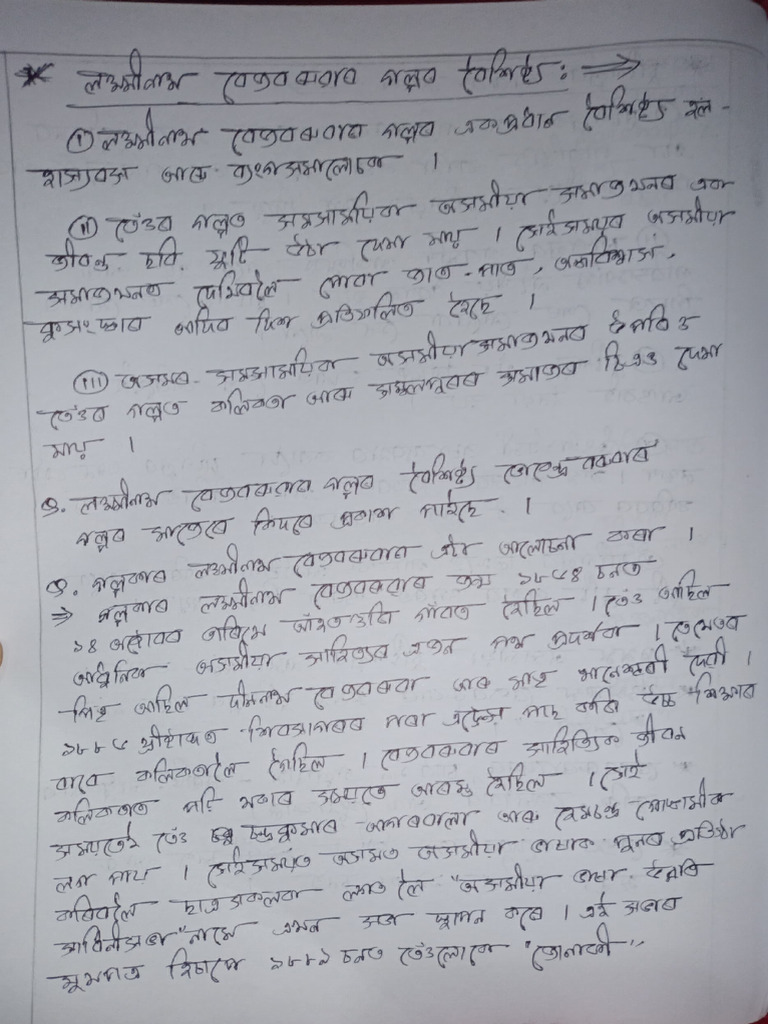 * লক্ষ্মীনাথ বেজবৰুৱাৰ গল্পৰ বৈশিষ্ট্য : ⇒
① লক্ষ্মীনাথ বেজবৰুৱাৰ গল্পৰ এক প্ৰধান বৈশিষ্ট্য হল -
হাস্যৰস আৰু ব্যংগ সমালোচক ।
② তেওঁৰ গল্পত সমসাময়িক অসমীয়া সমাজখনৰ এক
জীৱন্ত ছবি ফুটি উঠা দেখা যায় । সেই সময়ৰ অসমীয়া
সমাজখনত দেখিবলৈ পোৱা জাত-পাত, অন্ধবিশ্বাস,
কুসংস্কাৰ আদিৰ দিশ প্ৰতিফলিত হৈছে ।
③ অসমৰ সমসাময়িক অসমীয়া সমাজখনৰ উপৰিও
তেওঁৰ গল্পত কলিকতা আৰু সম্বলপুৰৰ সমাজৰ চিত্ৰও দেখা
যায় ।
Q. লক্ষ্মীনাথ বেজবৰুৱাৰ গল্পৰ বৈশিষ্ট্য বৰুৱাৰ
গল্পৰ মাজেৰে কিদৰে প্ৰকাশ পাইছে ।
Q. গল্পকাৰ লক্ষ্মীনাথ বেজবৰুৱাৰ আলোচনা কৰা ।
⇒ গল্পকাৰ লক্ষ্মীনাথ বেজবৰুৱাৰ জন্ম ১৮৬৪ চনত
১৪ অক্টোবৰ তাৰিখে আঁহতগুৰি গাঁৱত হৈছিল । তেওঁ আছিল
আধুনিক অসমীয়া সাহিত্যৰ এজন পথ প্ৰদৰ্শক । তেখেতৰ
পিতৃ আছিল দীননাথ বেজবৰুৱা আৰু মাতৃ থানেশ্বৰী দেৱী ।
১৮৮৬ খ্ৰীষ্টাব্দত শিৱসাগৰৰ পৰা এন্ট্ৰেন্স পাছ কৰি উচ্চ শিক্ষাৰ
বাবে কলিকতালৈ গৈছিল । বেজবৰুৱাৰ সাহিত্যিক জীৱন
কলিকতাত পঢ়ি থকাৰ সময়তে আৰম্ভ হৈছিল । সেই
সময়তেই তেওঁ চন্দ্ৰকুমাৰ আগৰৱালা আৰু হেমচন্দ্ৰ গোস্বামীক
লগ পায় । সেই সময়ত অসমত অসমীয়া ভাষাক পুনৰ প্ৰতিষ্ঠা
কৰিবলৈ ছাত্ৰসকলৰ লগত হৈ "অসমীয়া ভাষা উন্নতি
সাধিনী সভা" নামে এখন সভা স্থাপন কৰে । এই সভাৰ
মুখপত্ৰ হিচাপে ১৮৮৯ চনত তেওঁলোকে "জোনাকী"